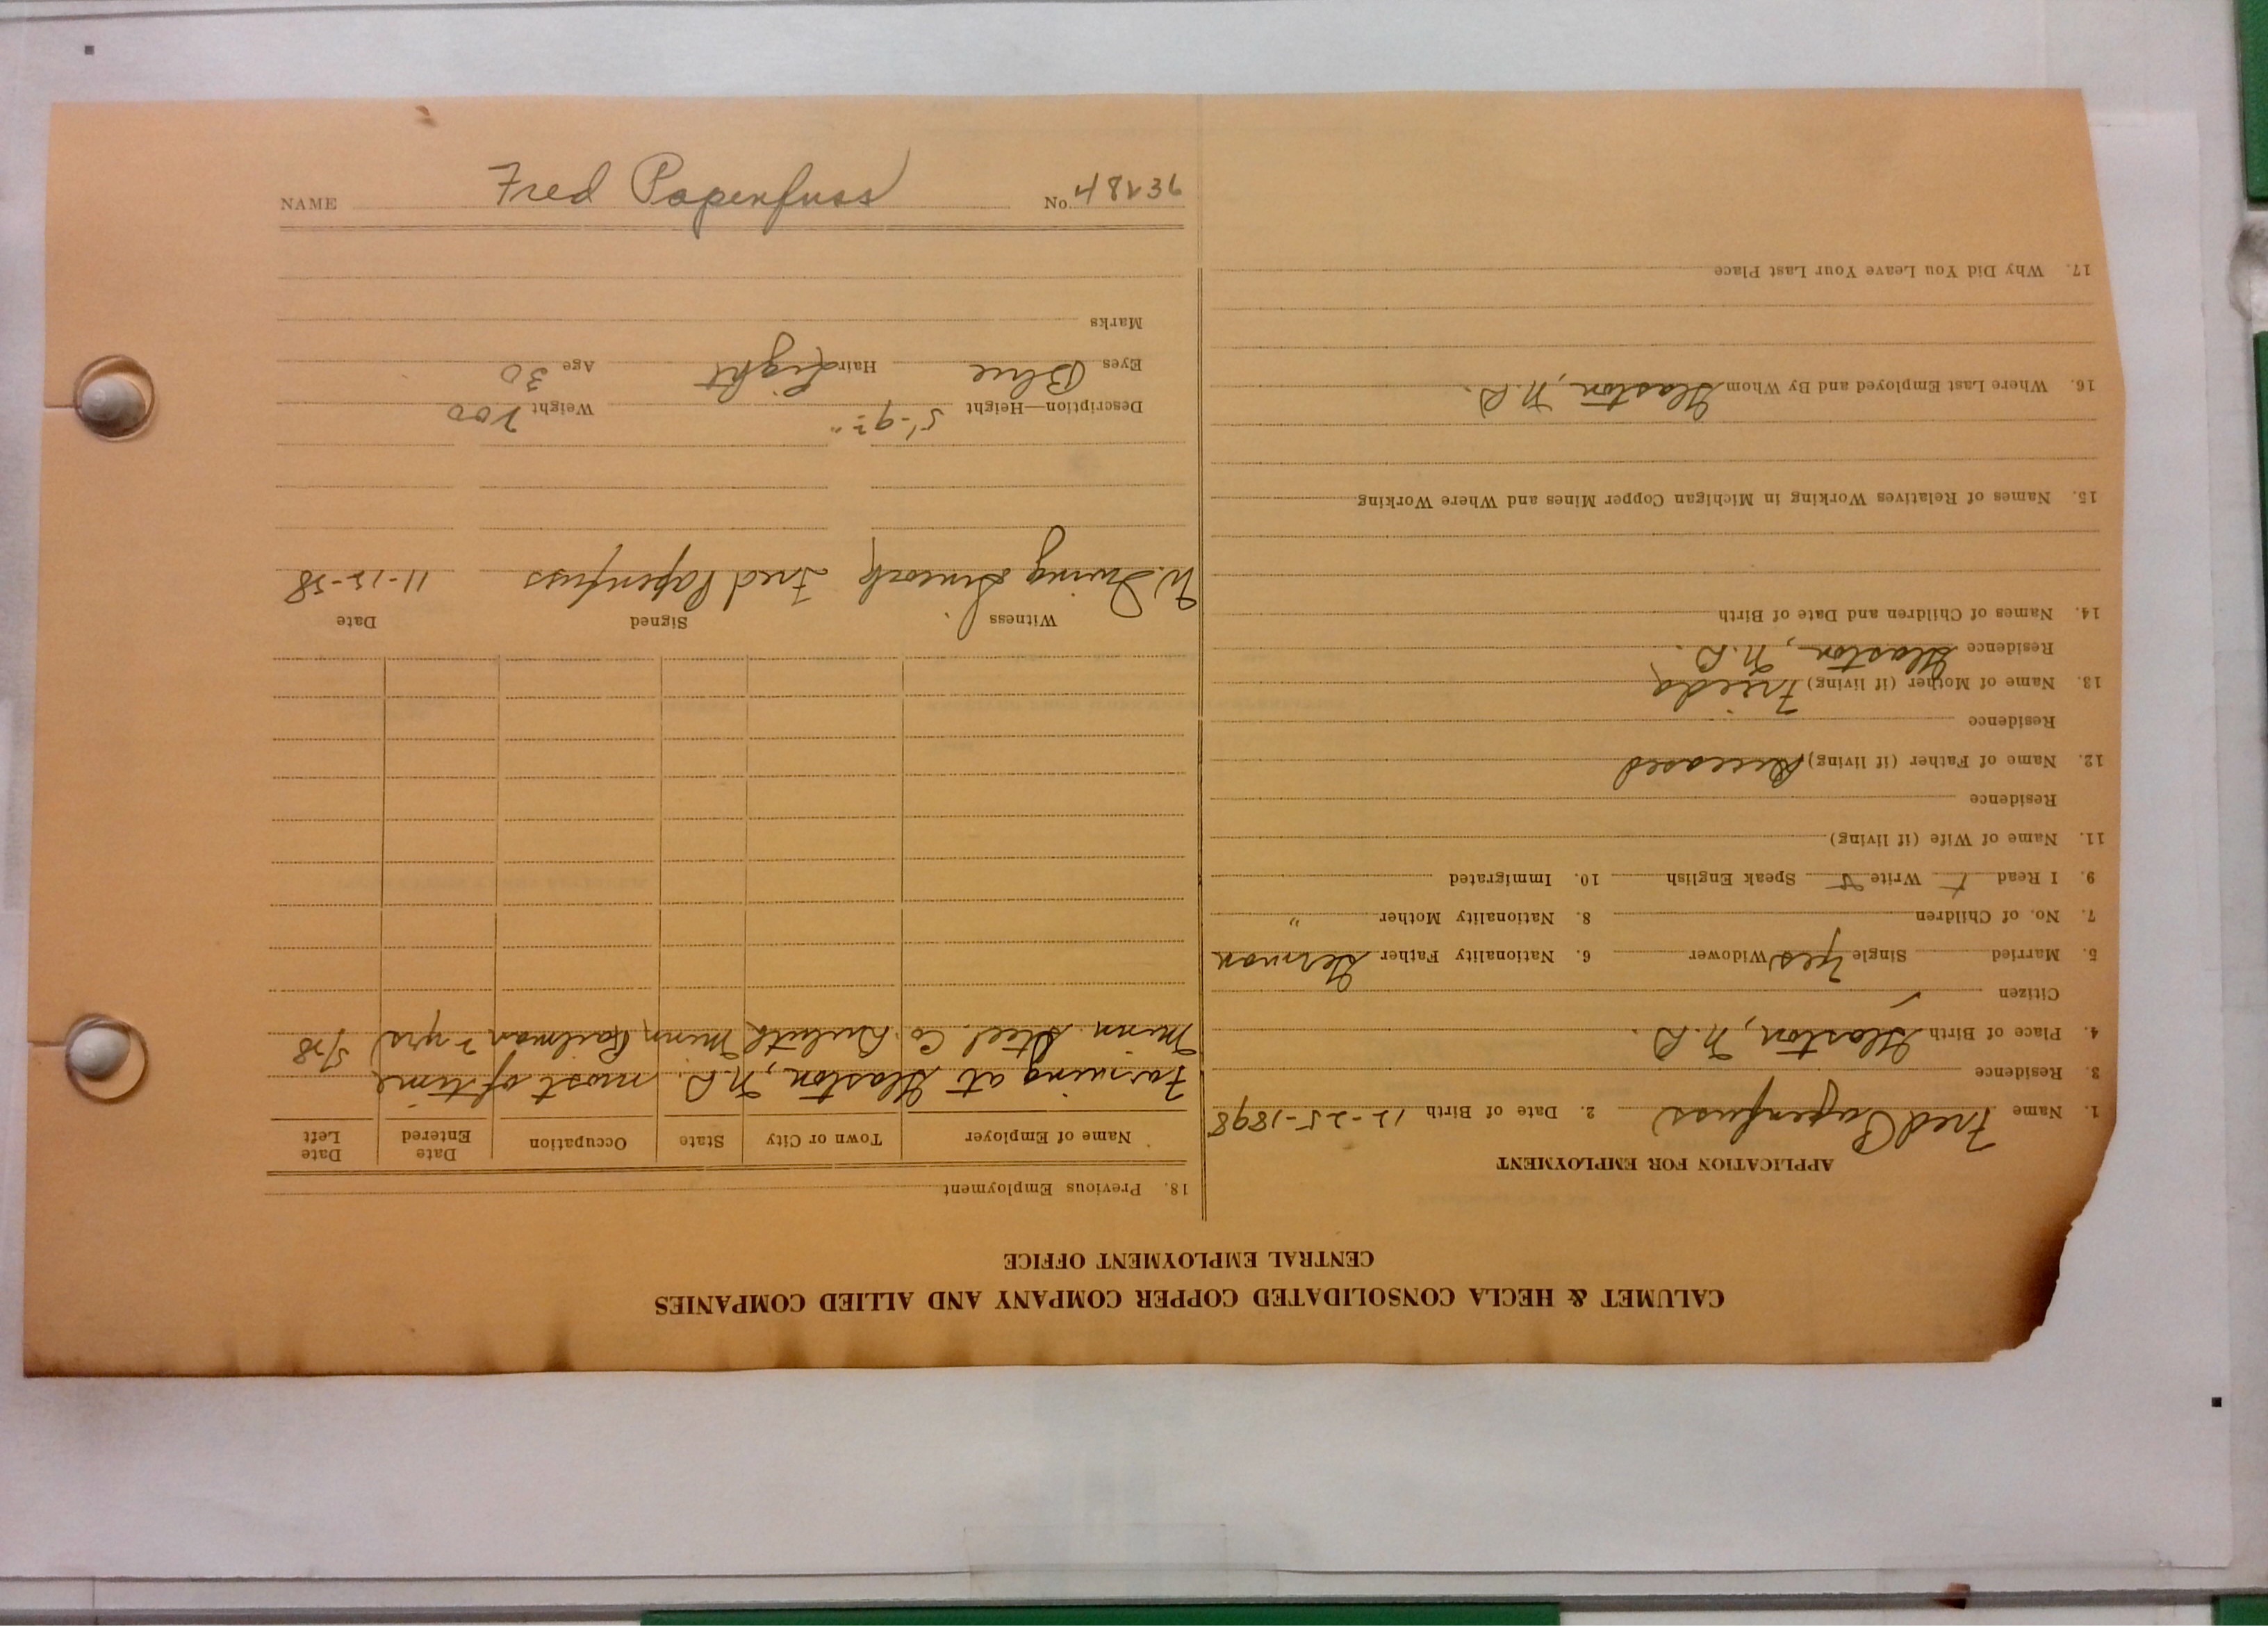 CALUMET & HECLA CONSOLIDATED COPPER COMPANY AND ALLIED COMPANIES
CENTRAL EMPLOYMENT OFFICE
APPLICATION FOR EMPLOYMENT
1. Name Fred Papenfuss 2. Date of Birth 12-25-1898
3. Residence
4. Place of Birth Glaston, N.D.
Citizen ✓
5. Married Single Yes Widower 6. Nationality Father German
7. No. of Children 8. Nationality Mother "
9. I Read Write Speak English 10. Immigrated
11. Name of Wife (if living)
Residence
12. Name of Father (if living) Deceased
Residence
13. Name of Mother (if living) Frieda
Residence Glaston, N.D.
14. Names of Children and Date of Birth
15. Names of Relatives Working in Michigan Copper Mines and Where Working
16. Where Last Employed and By Whom Glaston, N.D.
17. Why Did You Leave Your Last Place
18. Previous Employment
Name of Employer Town or City State Occupation Date Entered Date Left
Farming at Glaston, N.D. most of time
Minn. Steel Co. Duluth Minn 2 yrs 5/28
Witness Signed Date
W. Irving Fred Papenfuss
Description—Height 5'-9½" Weight 200
Eyes Blue Hair Light Age 30
Marks
NAME Fred Papenfuss No. 48236